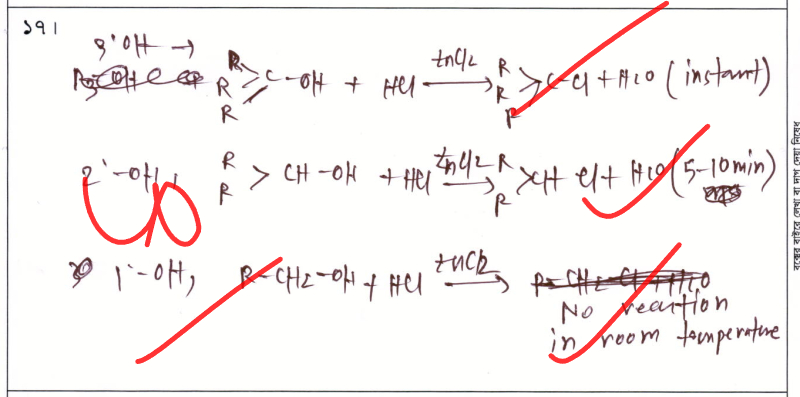 ১৭।
3°OH →
R R R > C-OH + HCl ZnCl2 → R R R > C-Cl + H2O (instant)
2°-OH, R R > CH-OH + HCl ZnCl2 → R R > CH Cl + H2O (5-10min)
1°-OH, R-CH2-OH + HCl ZnCl2 → R-CH2-Cl + H2O
No reaction
in room temperature
বক্সের বাইরে লেখা বা দাগ দেয়া নিষেধ